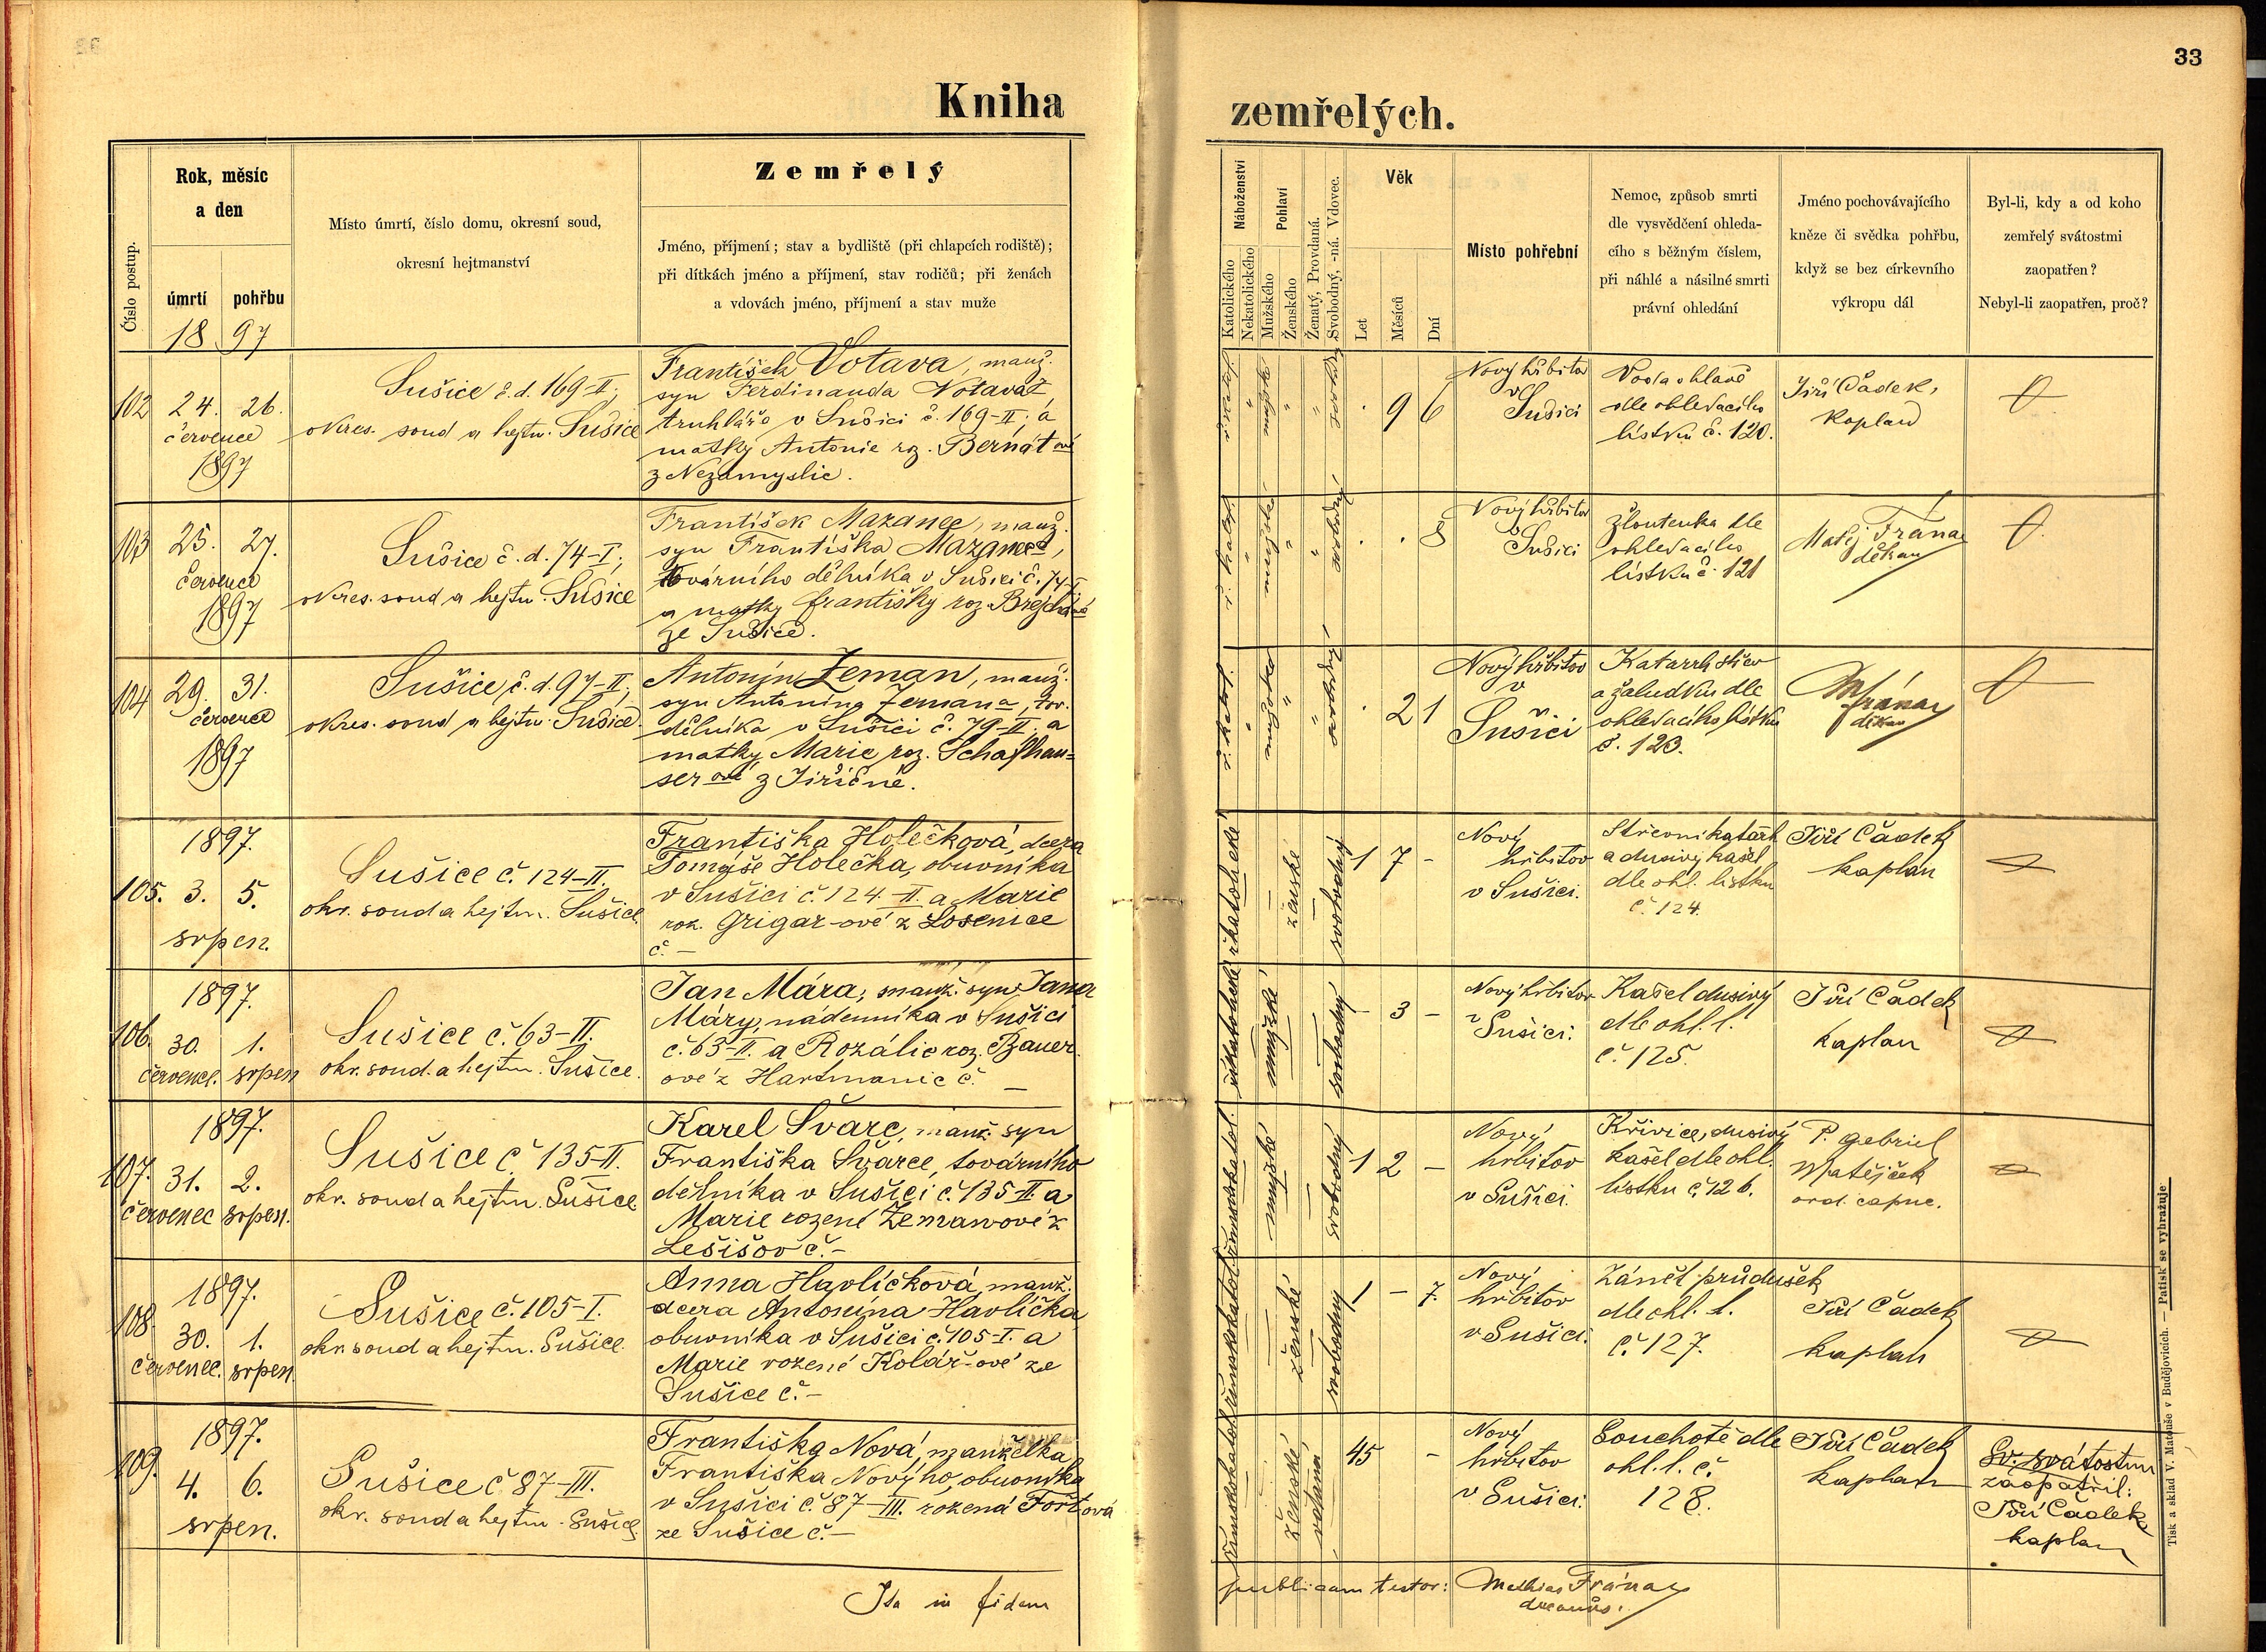 33
Kniha zemřelých.
Číslo postup.
Rok, měsíc
a den
úmrtí pohřbu
18 97
Místo úmrtí, číslo domu, okresní soud,
okresní hejtmanství
Zemřelý
Jméno, příjmení; stav a bydliště (při chlapcích rodiště);
při dítkách jméno a příjmení, stav rodičů; při ženách
a vdovách jméno, příjmení a stav muže
Náboženství
Katolického
Nekatolického
Pohlaví
Mužského
Ženského
Ženatý, Provdaná.
Svobodný, -ná. Vdovec.
Věk
Let
Měsíců
Dní
Místo pohřební
Nemoc, způsob smrti
dle vysvědčení ohleda-
cího s běžným číslem,
při náhlé a násilné smrti
právní ohledání
Jméno pochovávajícího
kněze či svědka pohřbu,
když se bez církevního
výkropu dál
Byl-li, kdy a od koho
zemřelý svátostmi
zaopatřen?
Nebyl-li zaopatřen, proč?
102
24. 26.
července
1897
Sušice č.d. 169-II;
okres. soud a hejtm. Sušice
František Votava, manž.
syn Ferdinanda Votava
truhláře v Sušici č. 169-II; a
matky Antonie roz. Bernátové
z Nezamyslic.
9 6
Nový hřbitov
v
Sušici
Voda v hlavě
dle ohledacího
lístku č. 120.
Jiří Čadek,
kaplan
103
25. 27.
července
1897
Sušice č.d. 74-I;
okres. soud a hejtm. Sušice
František Mazanec, manž.
syn Františka Mazance,
továrního dělníka v Sušici č. 74-I
a matky Františky roz.
ze Sušice.
8
Nový hřbitov
v
Sušici
Žloutenka dle
ohledacího
lístku č. 121
Matěj Frána
děkan
104
29. 31.
července
1897
Sušice, č.d. 97-II;
okres. soud a hejtm. Sušice
Antonín Zeman, manž.
syn Antonína Zemana, tov.
dělníka v Sušici č. 79-II; a
matky Marie roz. Schafhau=
serové z Jiřičné.
2 1
Nový hřbitov
v
Sušici
Katarrh střev
a žaludku dle
ohledacího lístku
č. 123.
MFrána
děkan
1897.
105. 3. 5.
srpen.
Sušice č. 124-II.
okr. soud a hejtm. Sušice
Františka Holečková, dcera
Tomáše Holečka, obuvníka
v Sušici č. 124-II. a Marie
roz. Grigar-ové z Losenice
č. -
římskokatolické
ženské
svobodný
1 7 -
Nový
hřbitov
v Sušici.
Střevní katarh
a dusivý kašel
dle ohl. lístku
č. 124.
Jiří Čadek
kaplan
1897.
106. 30. 1.
červenec. srpen
Sušice č. 63-II.
okr. soud. a hejtm. Sušice.
Jan Mára, manž. syn Jana
Máry, nádenníka v Sušici
č. 63-II. a Rozálie roz. Bauer
ové z Hartmanic č. -
mužské
svobodný
- 3 -
Nový hřbitov
v Sušici.
Kašel dusivý
dle ohl. l.
č. 125.
Jiří Čadek
kaplan
1897.
107. 31. 2.
červenec srpen.
Sušice č. 135-II.
okr. soud a hejtm. Sušice
Karel Švarc, manž. syn
Františka Švarce, továrního
dělníka v Sušici č. 135-II. a
Marie rozené Zemanové z
Lešišov č. -
mužské
svobodný
1 2 -
Nový
hřbitov
v Sušici.
Křivice, dusivý
kašel dle ohl.
lístku č. 126.
P. Gebriel
Matějček
ord. capuc.
1897.
108. 30. 1.
červenec. srpen.
Sušice č. 105-I.
okr. soud a hejtm. Sušice.
Anna Havlíčková, manž.
dcera Antonína Havlíčka,
obuvníka v Sušici č. 105-I. a
Marie rozené Kolář-ové ze
Sušice č. -
ženské
svobodný
1 - 7.
Nový
hřbitov
v Sušici.
Zánět průdušek
dle ohl. l.
č. 127.
Jiří Čadek
kaplan
1897.
109. 4. 6.
srpen.
Sušice č. 87-III.
okr. soud a hejtm. Sušice
Františka Nová, manželka
Františka Nového, obuvníka
v Sušici č. 87-III. rozená Fořtová
ze Sušice č. -
ženské
vdaná
45 -
Nový
hřbitov
v Sušici.
Souchotě dle
ohl. l. č.
128.
Jiří Čadek
kaplan
Sv. svátostmi
zaopatřil:
Jiří Čadek
kaplan
Ita in fidem publicam testor: Mathias Frána
decanus.
Tisk a sklad V. Matouše v Budějovicích. — Patisk se vyhražuje